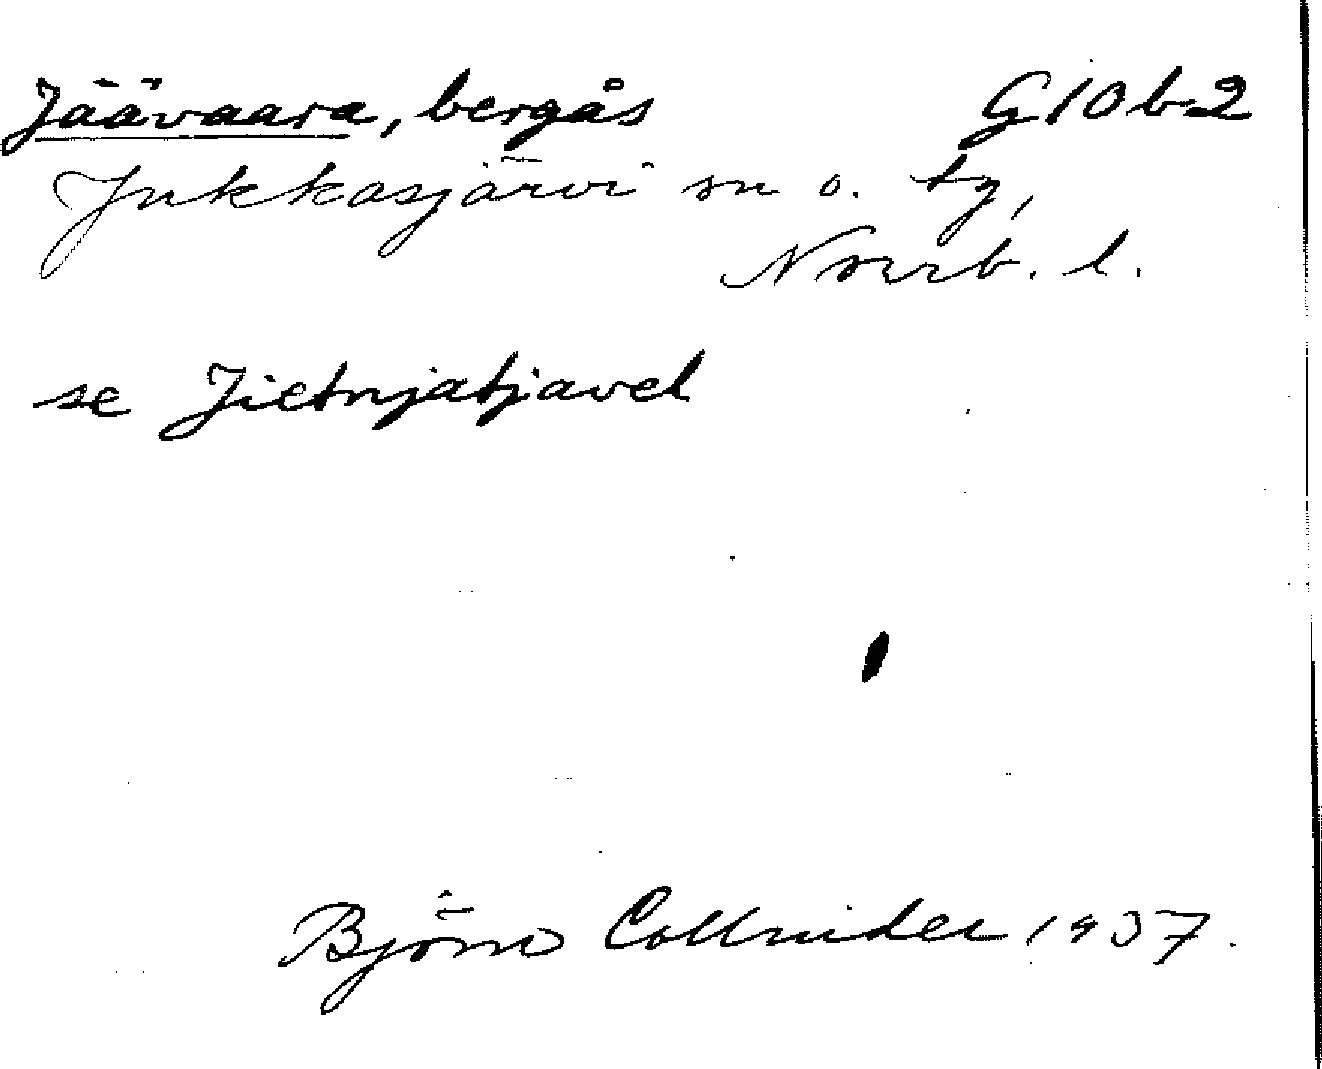 Jäävaara, bergås G10b2
Jukkasjärvi sn o. tg,
Norrb. l.
se Jietnjatjavel
Björn Collinder 1937.